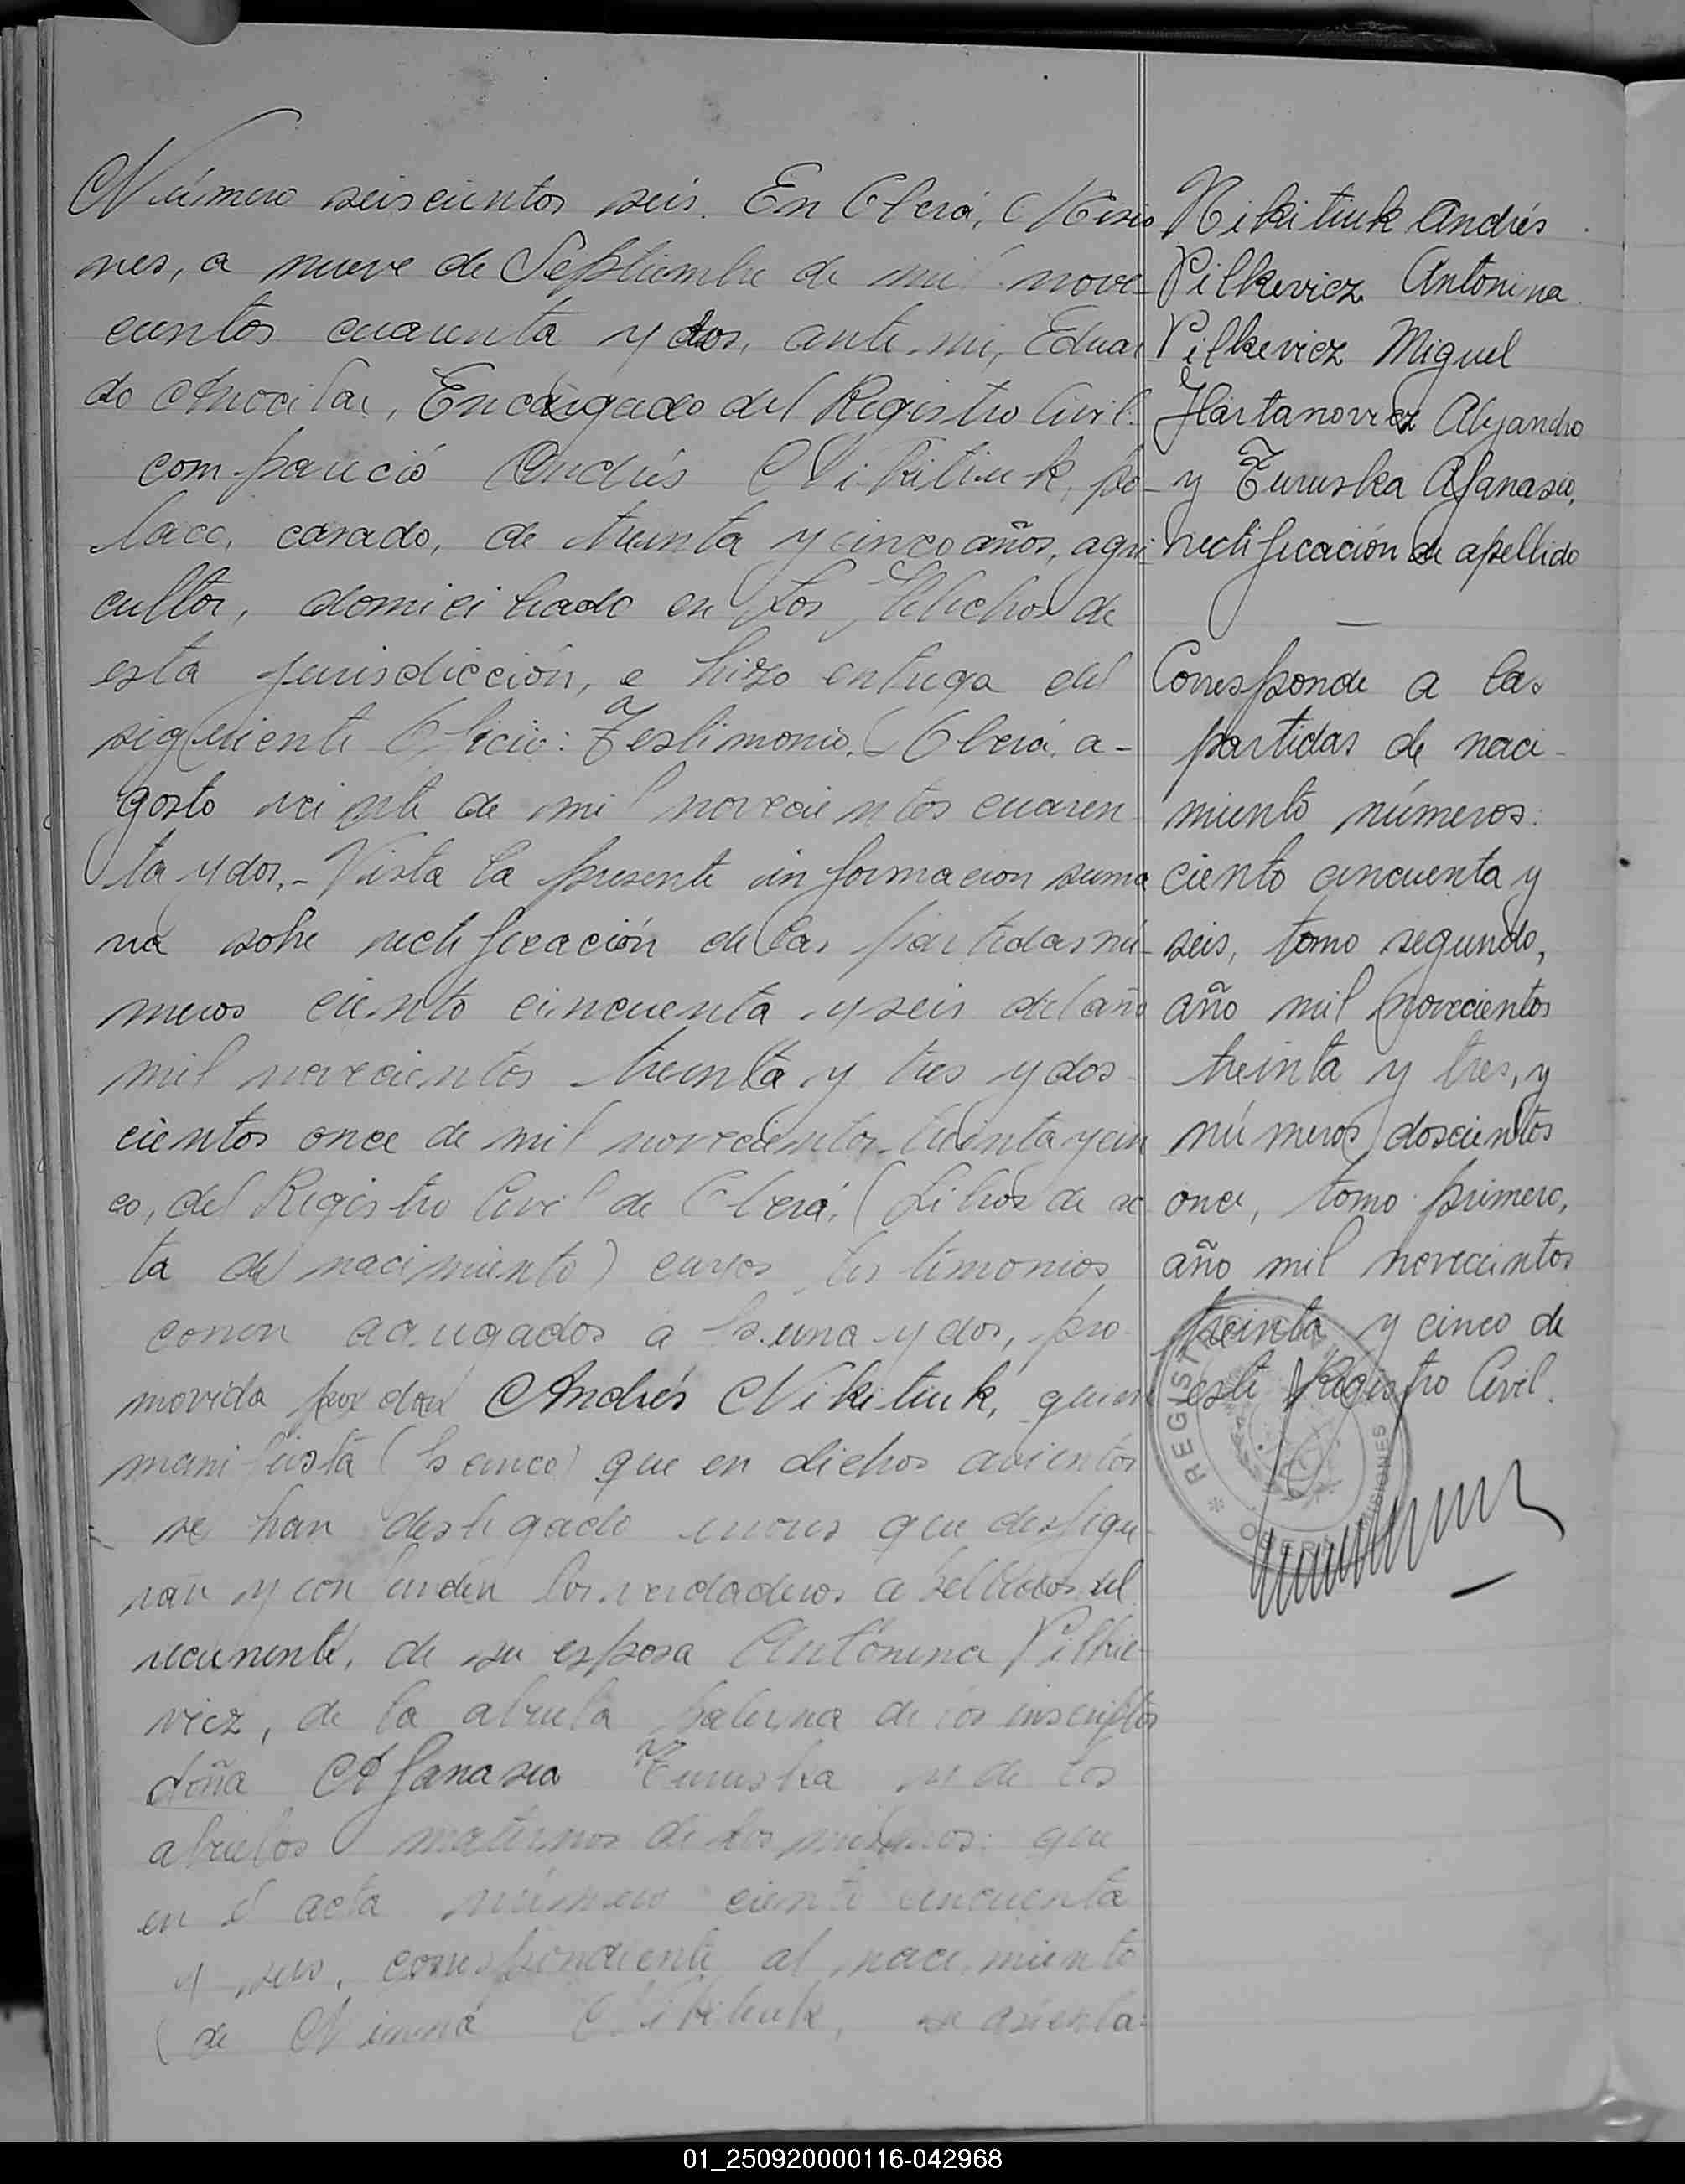 Número seiscientos seis. En Oberá, Misio
nes, a nueve de Septiembre de mil nove-
cientos cuarenta y dos, ante mi, Eduar
do Encargado del Registro Civil.
compareció Andrés Nikitiuk, po-
laco, casado, de treinta y cinco años, agri
cultor, domiciliado en Los Helechos de
esta jurisdicción, e hizo entrega del
siguiente Oficio: Testimonio. Oberá, a-
gosto veinte de mil novecientos cuaren
ta y dos.- Vista la presente informacion suma
ria sobre rectificación de las partidas nú-
meros ciento cincuenta y seis del año
mil novecientos treinta y tres y dos
cientos once de mil novecientos treinta y cin
co, del Registro Civil de Oberá, (Libros de ac
ta de nacimiento) cuyos testimonios
corren agregados a fs. una y dos, pro-
movida por don Andrés Nikitiuk, quien
manifiesta (fs cinco) que en dichos asientos
se han deslizado errores que desfigu-
ran y confunden los verdaderos apellidos del
recurrente, de su esposa Antonina Pilke-
vicz, de la abuela paterna de los inscriptos
doña Afanasia Turuska y de los
abuelos maternos de los mismos: que
en el acta número ciento cincuenta
y seis, correspondiente al nacimiento
de Nikitiuk, se asienta:
Nikitiuk Andrés
Pilkevicz Antonina
Pilkevicz Miguel
Hartanovicz Alejandro
y Turuska Afanasia,
rectificación de apellido
—
Corresponde a las
partidas de naci-
miento números:
ciento cincuenta y
seis, tomo segundo,
año mil novecientos
treinta y tres, y
números doscientos
once, tomo primero,
año mil novecientos
treinta y cinco de
este Registro Civil.
* REGISTR
OBERA MISIONES
01_250920000116-042968